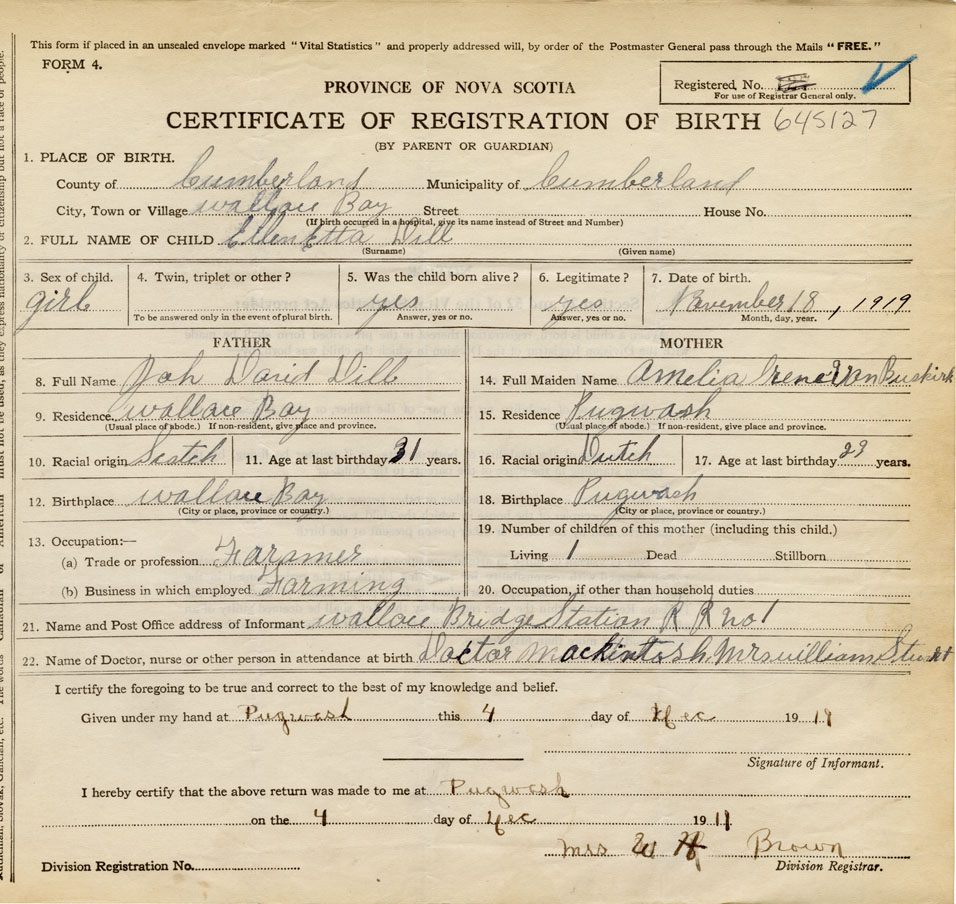 This form if placed in an unsealed envelope marked "Vital Statistics" and properly addressed will, by order of the Postmaster General pass through the Mails "FREE."
FORM 4.
Registered, No.
For use of Registrar General only.
PROVINCE OF NOVA SCOTIA
CERTIFICATE OF REGISTRATION OF BIRTH 645127
(BY PARENT OR GUARDIAN)
1. PLACE OF BIRTH.
County of Cumberland Municipality of Cumberland
City, Town or Village wallace Bay Street House No.
(If birth occurred in a hospital, give its name instead of Street and Number)
2. FULL NAME OF CHILD Ellen Etta Dill
(Surname) (Given name)
3. Sex of child. 4. Twin, triplet or other? 5. Was the child born alive? 6. Legitimate? 7. Date of birth.
girl yes yes November 18, 1919
To be answered only in the event of plural birth. Answer, yes or no. Answer, yes or no. Month, day, year.
FATHER MOTHER
8. Full Name Joh David Dill 14. Full Maiden Name Amelia Irene Van Buskirk
9. Residence wallace Bay 15. Residence Pugwash
(Usual place of abode.) If non-resident, give place and province. (Usual place of abode.) If non-resident, give place and province.
10. Racial origin Scotch 11. Age at last birthday 31 years. 16. Racial origin Dutch 17. Age at last birthday years.
12. Birthplace wallace Bay 18. Birthplace Pugwash
(City or place, province or country.) (City or place, province or country.)
13. Occupation:— 19. Number of children of this mother (including this child.)
(a) Trade or profession Faramer Living 1 Dead Stillborn
(b) Business in which employed Farming 20. Occupation, if other than household duties
21. Name and Post Office address of Informant wallace Bridge Station R R no 1
22. Name of Doctor, nurse or other person in attendance at birth Doctor Mackintosh, Mrs william
I certify the foregoing to be true and correct to the best of my knowledge and belief.
Given under my hand at Pugwash this 4 day of Dec 19 19
Signature of Informant.
I hereby certify that the above return was made to me at Pugwash
on the 4 day of Dec 19
Mrs W H Brown
Division Registration No. Division Registrar.